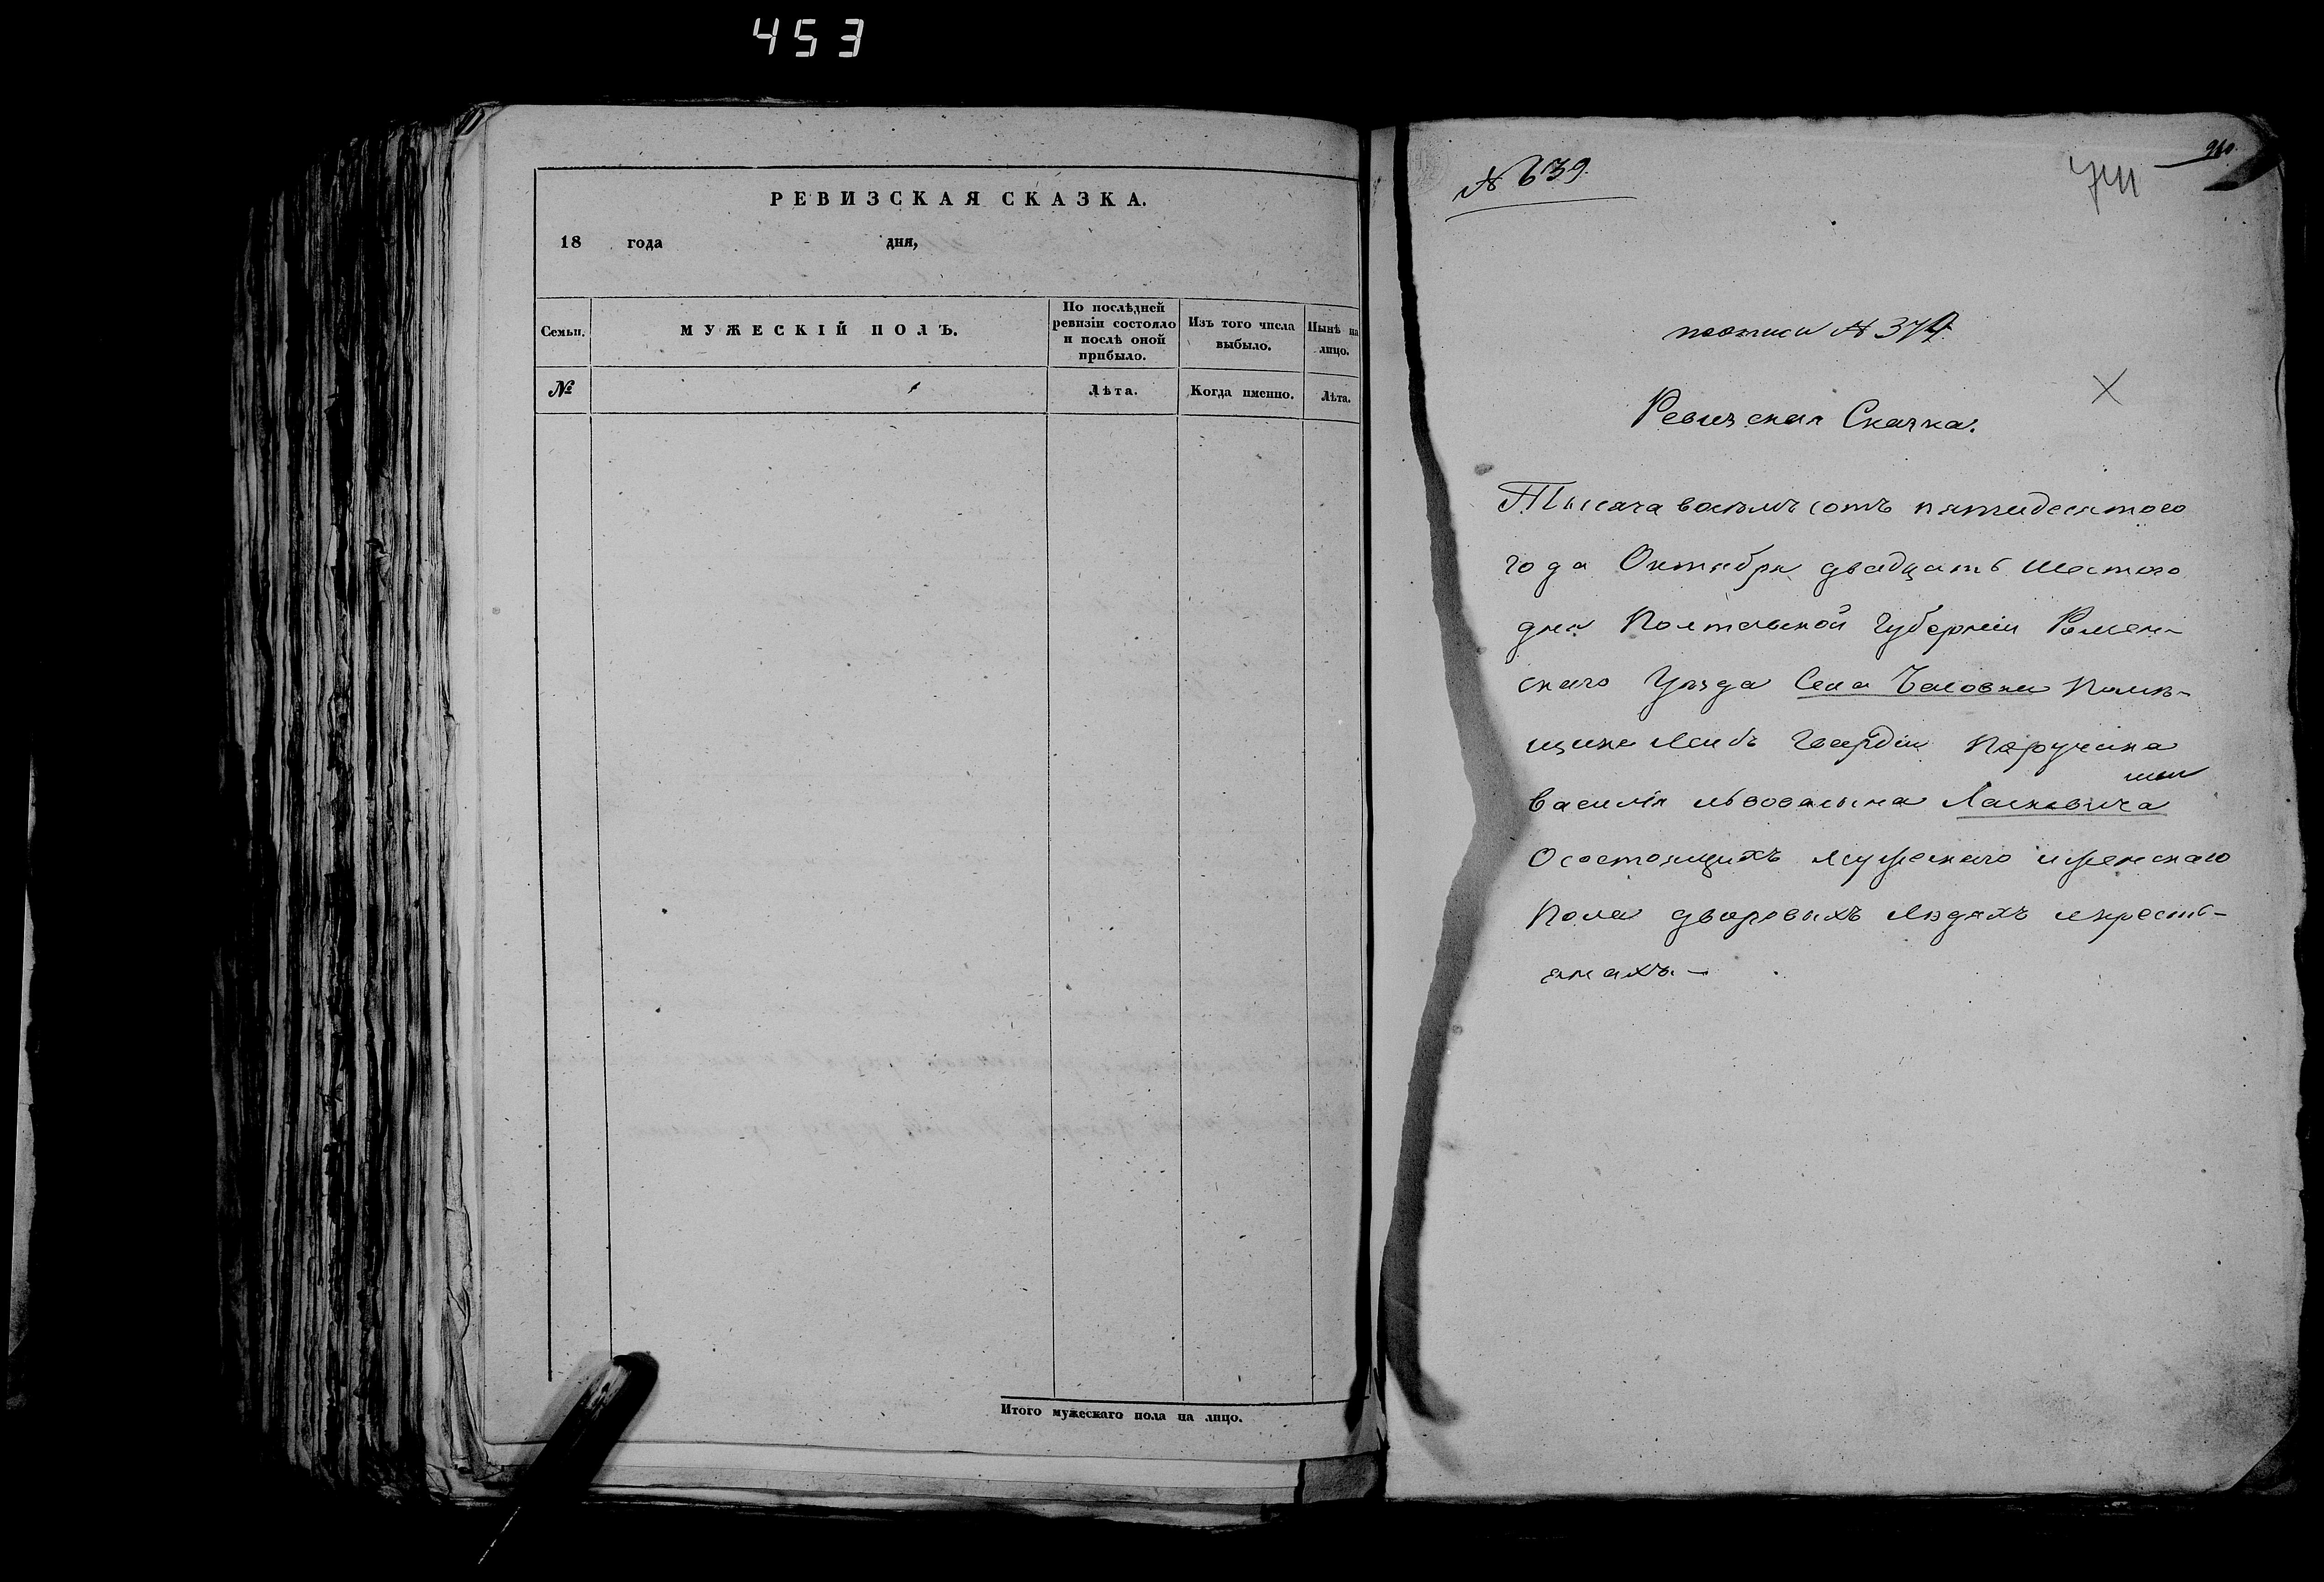 453
РЕВИЗСКАЯ СКАЗКА.
18 года дня,
Семьи.
МУЖЕСКІЙ ПОЛЪ.
По послѣдней
ревизіи состояло
и послѣ оной
прибыло.
Изъ того числа
выбыло.
Нынѣ на
лицо.
№
Лѣта.
Когда именно.
Лѣта.
Итого мужескаго пола на лицо.
№ 639.
960
741
поописи № 374
Ревизская Сказка.
Тысяча восѣмъ сотъ пятидесятого
года Октября двадцать шестого
дня Полтавской Губерніи Ромен-
скаго Уѣзда Села Басовки Помѣ-
щика Лейбъ Гвардіи Поручика
Василія Львова сына
О состоящихъ мужескаго и женскаго
Пола дворовыхъ людяхъ и кресть-
янахъ. —